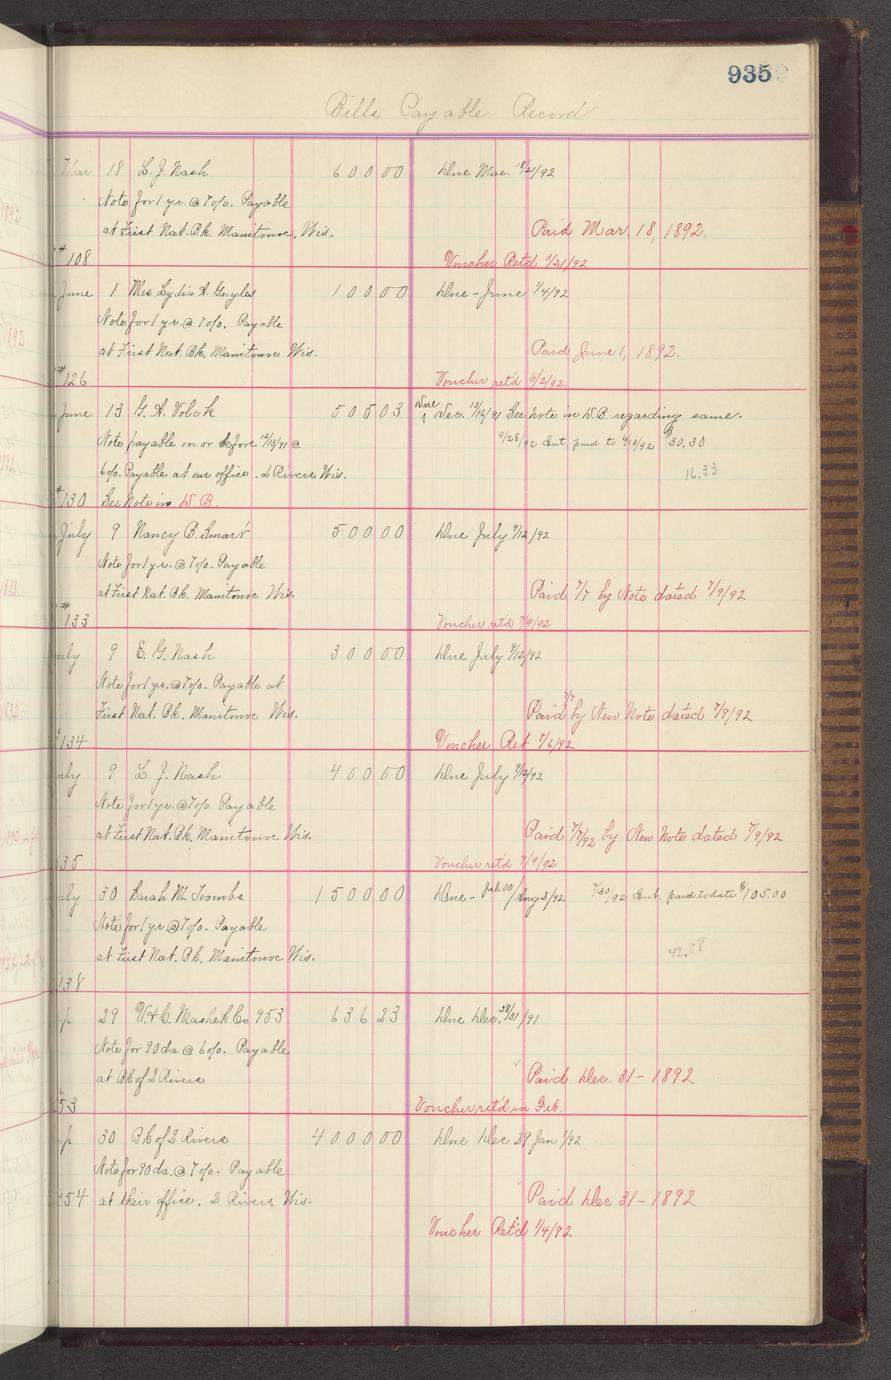 935
Bills Payable Record
Mar 18 L. J. Nash 600 00 Due Mar. 18/21/92
Note for 1 yr. @ 7%. Payable
at First Nat. Bk. Manitowoc, Wis. Paid Mar. 18, 1892.
#108 Voucher Retd 3/21/92
June 1 Mrs Lydia A. 100 00 Due - June 1/4/92
Note for 1 yr. @ 7%. Payable
at First Nat. Bk. Manitowoc Wis. Paid June 1, 1892.
#126 Voucher ret'd 6/2/92
June 13 G. A. Volock 505 03 Due Dec. 13/16/91 See Note in D.B. regarding same.
Note payable on or before 12/13/91 @ 9/28/92 Int. paid to 9/13/92 $30.30
6%. Payable at our office. 2 Rivers Wis. 16.33
#130 See Note in D.B.
July 9 Nancy B. Smart 500 00 Due July 9/12/92
Note for 1 yr. @ 7%. Payable
at First Nat. Bk. Manitowoc Wis. Paid 7/7 by Note dated 7/9/92
#133 Voucher ret'd 7/9/92
uly 9 E. G. Nash 300 00 Due July 9/12/92
Note for 1 yr. @ 7%. Payable at
First Nat. Bk. Manitowoc Wis. Paid 7/7 by New Note dated 7/9/92
134 Voucher Ret 7/6/92
uly 9 L. J. Nash 400 00 Due July 9/12/92
Note for 1 yr. @ 7%. Payable
at First Nat. Bk. Manitowoc Wis. Paid 7/7/92 by New Note dated 7/9/92
135 Voucher ret'd 7/9/92
uly 30 Sarah M. Toombs 1500 00 Due - July 30/Aug 2/92 7/30/92 Int. paid to date $105.00
Note for 1 yr. @ 7%. Payable
at First Nat. Bk. Manitowoc Wis. 42.88
138
p 29 V. & C. Mashek Co 953 636 23 Due Dec. 28/31/91
Note for 90 da @ 6%. Payable
at Bk of 2 Rivers Paid Dec. 31 - 1892
53 Voucher ret'd in Feb.
p 30 Bk of 2 Rivers 4000 00 Due Dec 29 Jan 1/92
Note for 90 da. @ 7%. Payable
154 at their office. 2 Rivers Wis. Paid Dec 31 - 1892
Voucher Ret'd 1/4/92